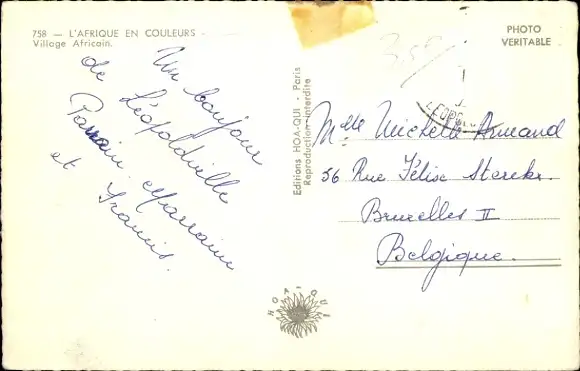 758 — L'AFRIQUE EN COULEURS
Village Africain.
PHOTO
VERITABLE
Un bonjour
de Léopoldville
Parrain, Marraine
et Francis.
Editions HOA-QUI - Paris
Reproduction interdite
Mlle Michelle Armand
56 Rue Félix Sterckx
Bruxelles II
Belgique.
HOA-QUI